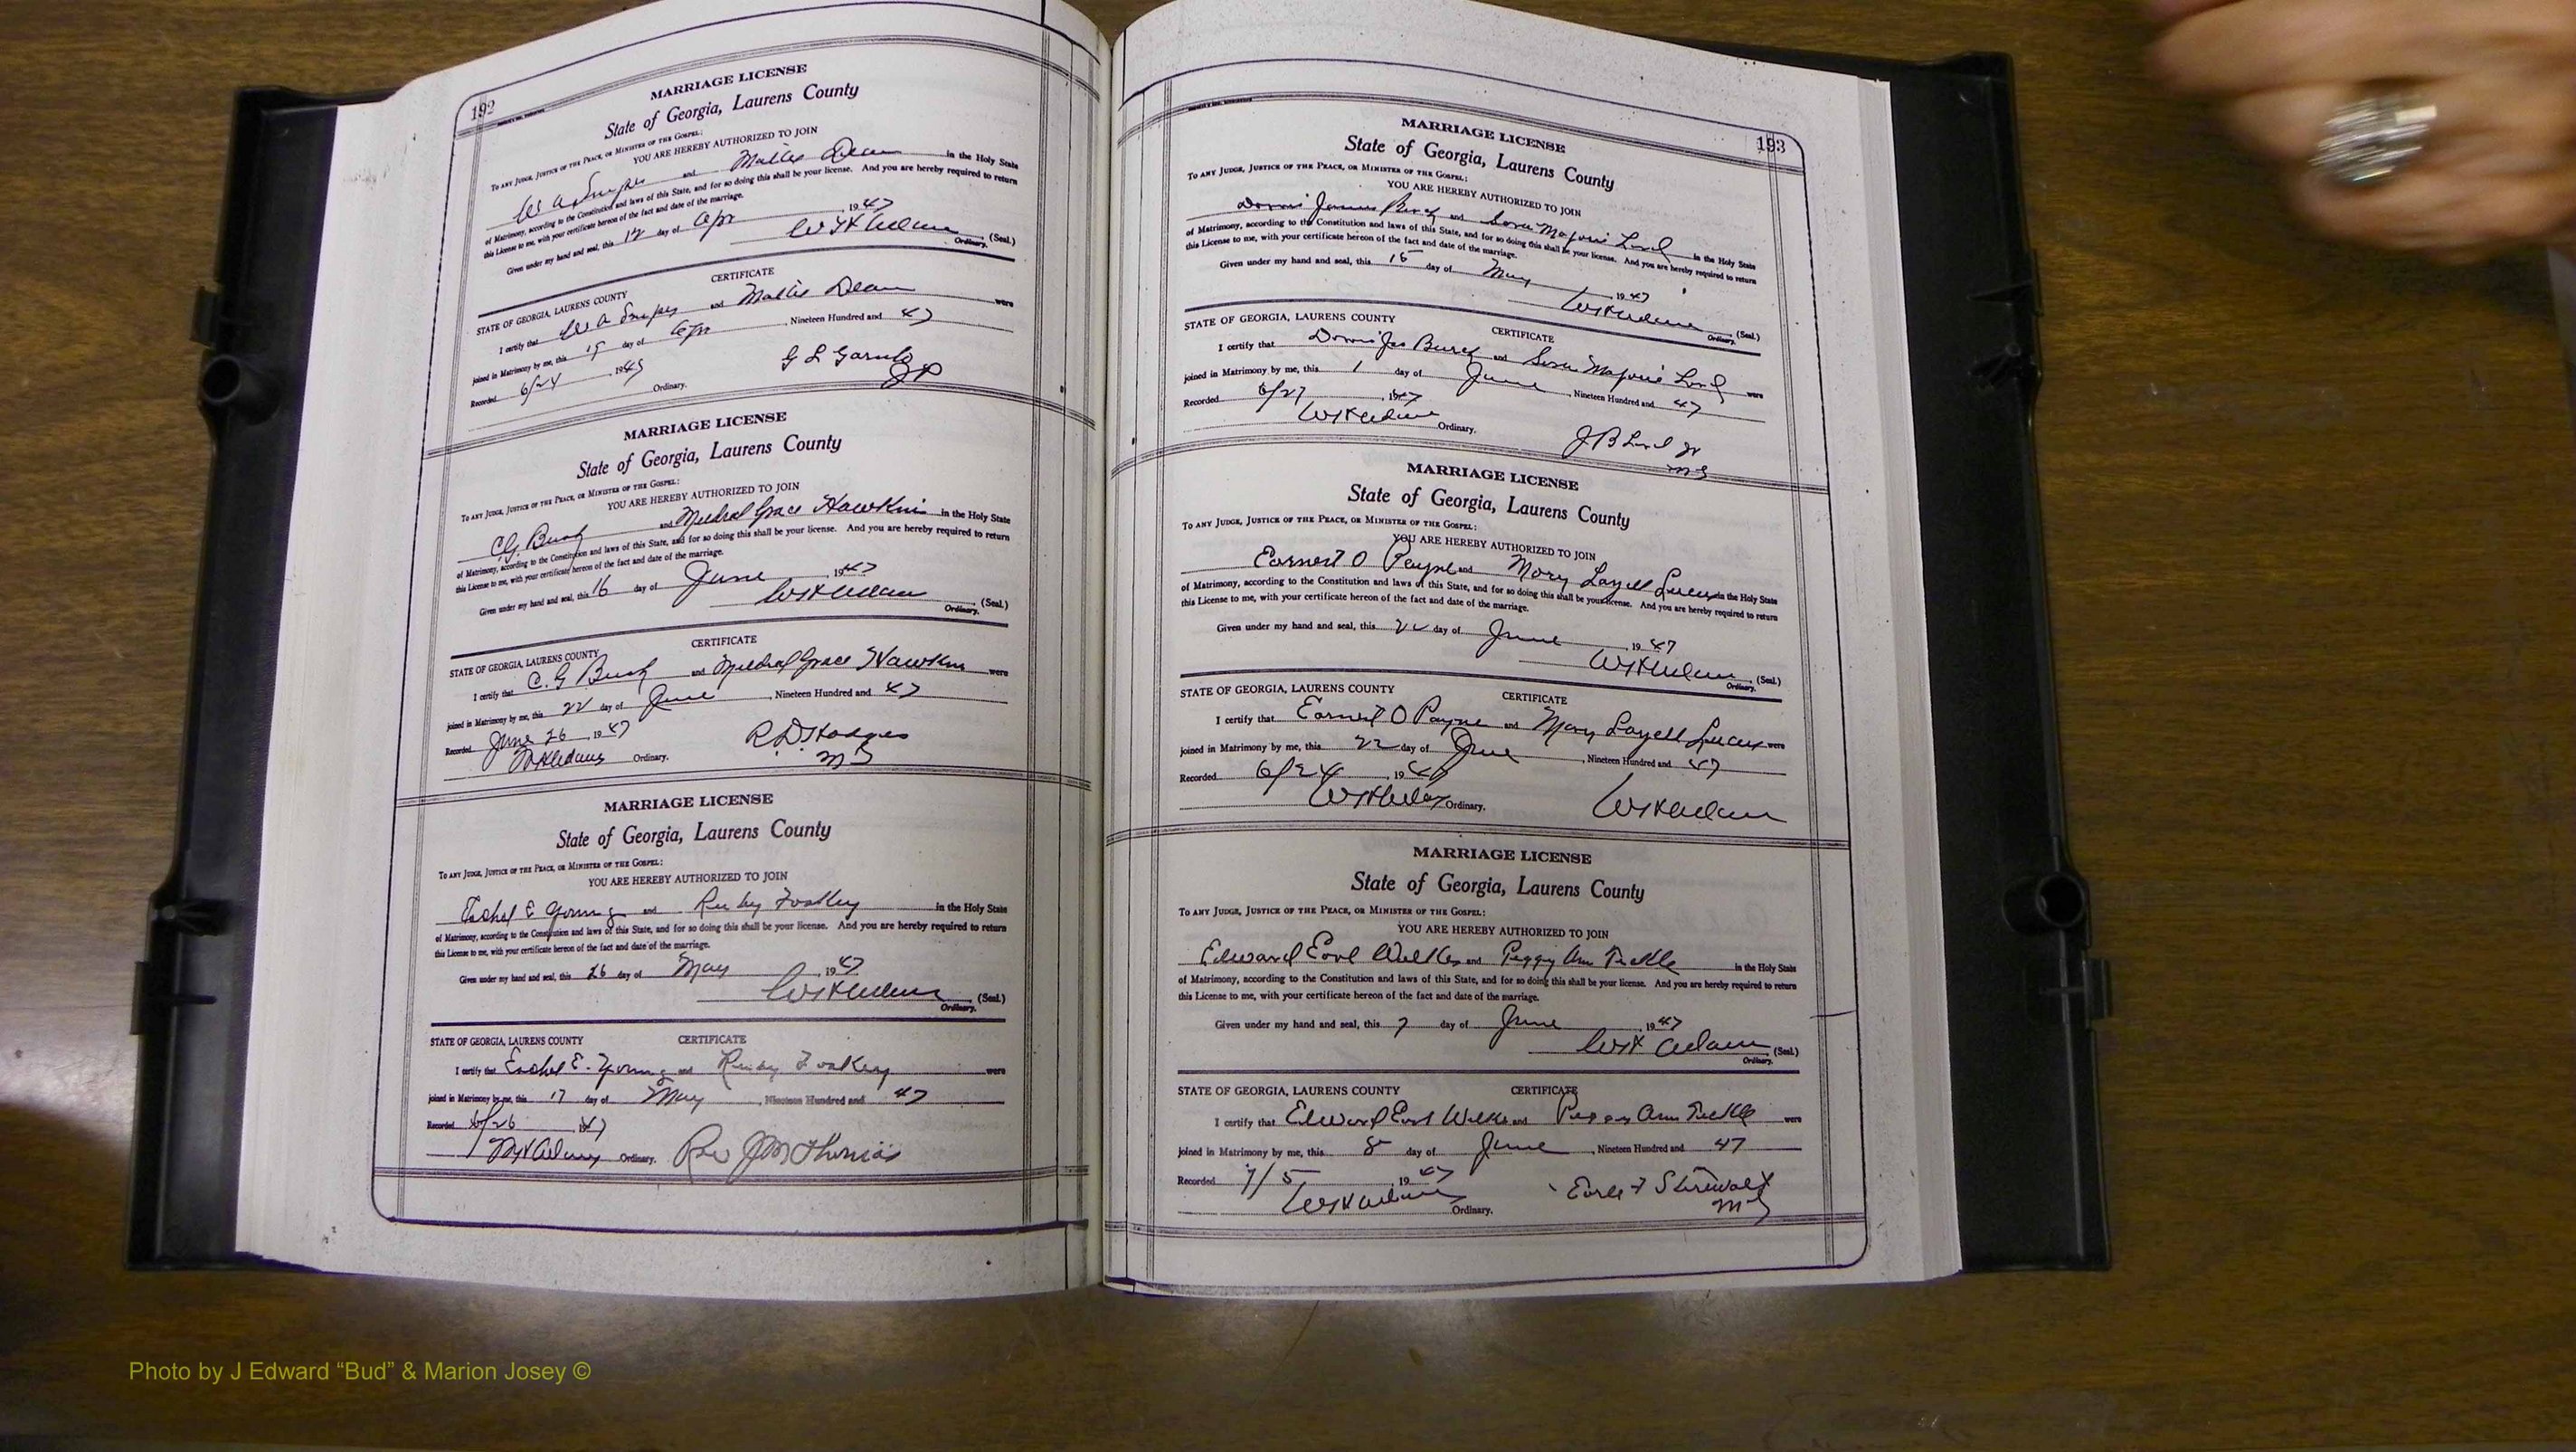 192
MARRIAGE LICENSE
State of Georgia, Laurens County
TO ANY JUDGE, JUSTICE OF THE PEACE, OR MINISTER OF THE GOSPEL:
YOU ARE HEREBY AUTHORIZED TO JOIN
W A and Mattie Dean in the Holy State
of Matrimony, according to the Constitution and laws of this State, and for so doing this shall be your license. And you are hereby required to return
this License to me, with your certificate hereon of the fact and date of the marriage.
Given under my hand and seal, this 12 day of Apr, 1947
(Seal.)
Ordinary.
CERTIFICATE
STATE OF GEORGIA, LAURENS COUNTY
I certify that W A and Mattie Dean were
joined in Matrimony by me, this day of Apr, Nineteen Hundred and 47
Recorded 6/24 19 Ordinary.
G L
JP
MARRIAGE LICENSE
State of Georgia, Laurens County
TO ANY JUDGE, JUSTICE OF THE PEACE, OR MINISTER OF THE GOSPEL:
YOU ARE HEREBY AUTHORIZED TO JOIN
C.G. Bush and Mildred Grace Hawkins in the Holy State
of Matrimony, according to the Constitution and laws of this State, and for so doing this shall be your license. And you are hereby required to return
this License to me, with your certificate hereon of the fact and date of the marriage.
Given under my hand and seal, this 16 day of June, 1947
(Seal.)
Ordinary.
CERTIFICATE
STATE OF GEORGIA, LAURENS COUNTY
I certify that C. G Bush and Mildred Grace Hawkins were
joined in Matrimony by me, this 22 day of June, Nineteen Hundred and 47
Recorded June 26, 1947
Ordinary.
R. D. Hodges
MG
MARRIAGE LICENSE
State of Georgia, Laurens County
TO ANY JUDGE, JUSTICE OF THE PEACE, OR MINISTER OF THE GOSPEL:
YOU ARE HEREBY AUTHORIZED TO JOIN
E Young and Ruby in the Holy State
of Matrimony, according to the Constitution and laws of this State, and for so doing this shall be your license. And you are hereby required to return
this License to me, with your certificate hereon of the fact and date of the marriage.
Given under my hand and seal, this 26 day of May, 1947
(Seal.)
Ordinary.
CERTIFICATE
STATE OF GEORGIA, LAURENS COUNTY
I certify that E. Young and Ruby were
joined in Matrimony by me, this 17 day of May, Nineteen Hundred and 47
Recorded 6/26 1947
Ordinary. Rev J M Thomas
193
MARRIAGE LICENSE
State of Georgia, Laurens County
TO ANY JUDGE, JUSTICE OF THE PEACE, OR MINISTER OF THE GOSPEL:
YOU ARE HEREBY AUTHORIZED TO JOIN
James and Marjorie Lord in the Holy State
of Matrimony, according to the Constitution and laws of this State, and for so doing this shall be your license. And you are hereby required to return
this License to me, with your certificate hereon of the fact and date of the marriage.
Given under my hand and seal, this 15 day of May, 1947
(Seal.)
Ordinary.
STATE OF GEORGIA, LAURENS COUNTY
CERTIFICATE
I certify that Jas and Marjorie Lord were
joined in Matrimony by me, this 1 day of June, Nineteen Hundred and 47
Recorded 6/27, 1947
Ordinary.
J B Lord Jr
MG
MARRIAGE LICENSE
State of Georgia, Laurens County
TO ANY JUDGE, JUSTICE OF THE PEACE, OR MINISTER OF THE GOSPEL:
YOU ARE HEREBY AUTHORIZED TO JOIN
Earnest O Payne and Mary in the Holy State
of Matrimony, according to the Constitution and laws of this State, and for so doing this shall be your license. And you are hereby required to return
this License to me, with your certificate hereon of the fact and date of the marriage.
Given under my hand and seal, this 22 day of June, 1947
(Seal.)
Ordinary.
STATE OF GEORGIA, LAURENS COUNTY
CERTIFICATE
I certify that Earnest O Payne and Mary were
joined in Matrimony by me, this 22 day of June, Nineteen Hundred and 47
Recorded 6/24, 1947
Ordinary.
MARRIAGE LICENSE
State of Georgia, Laurens County
TO ANY JUDGE, JUSTICE OF THE PEACE, OR MINISTER OF THE GOSPEL:
YOU ARE HEREBY AUTHORIZED TO JOIN
Edward Earl Wilkes and Peggy Ann in the Holy State
of Matrimony, according to the Constitution and laws of this State, and for so doing this shall be your license. And you are hereby required to return
this License to me, with your certificate hereon of the fact and date of the marriage.
Given under my hand and seal, this 7 day of June, 1947
(Seal.)
Ordinary.
STATE OF GEORGIA, LAURENS COUNTY
CERTIFICATE
I certify that Edward Earl Wilkes and Peggy Ann were
joined in Matrimony by me, this 8 day of June, Nineteen Hundred and 47
Recorded 7/5, 1947
Ordinary.
MG
Photo by J Edward “Bud” & Marion Josey ©